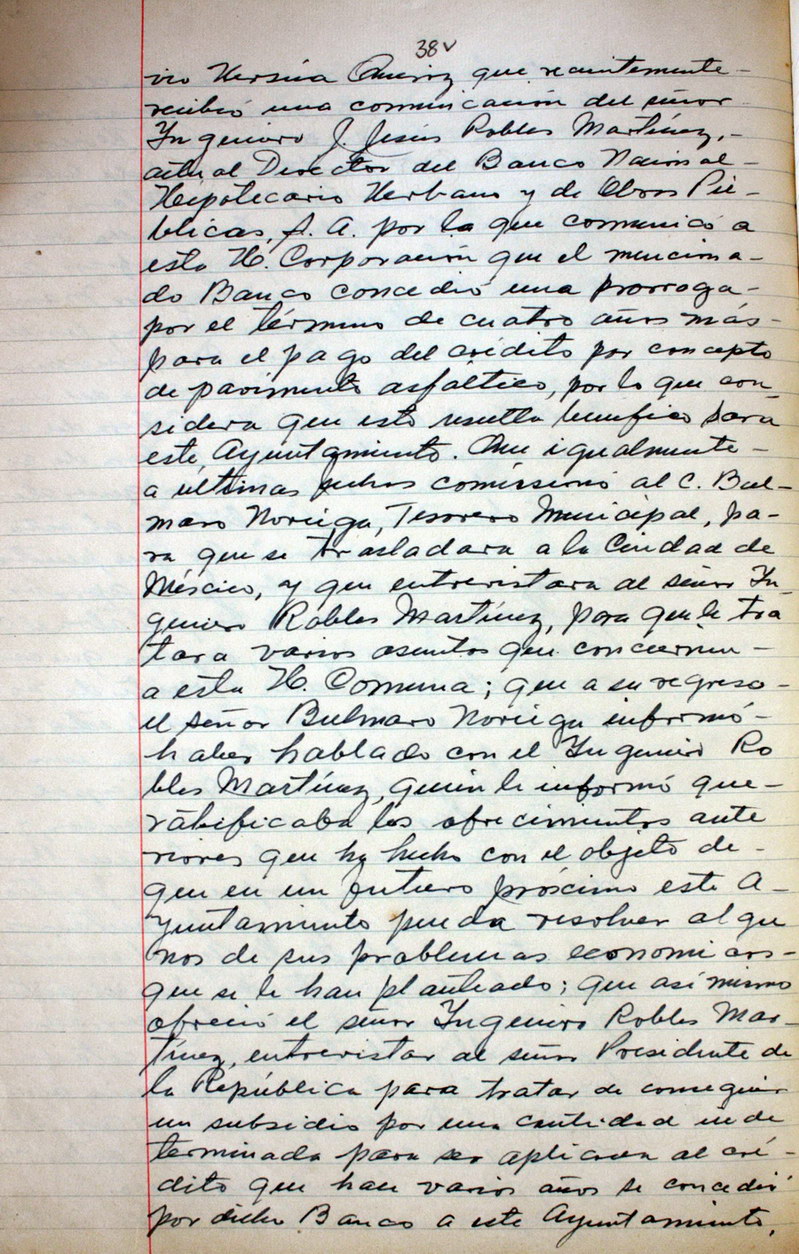 38v
vio Urzúa Quiroz que recientemente-
recibió una comunicación del señor
Ingeniero J. Jesús Robles Martínez,-
actual Director del Banco Nacional-
Hipotecario Urbano y de Obras Pú-
blicas, S. A. por la que comunicó a
esta H. Corporación que el menciona-
do Banco concedió una prorroga-
por el término de cuatro años más-
para el pago del crédito por concepto
de pavimento asfáltico, por lo que con-
sidera que esto resulta benefico para
este Ayuntamiento. Que igualmente-
a últimas fechas comisionó al C. Bul-
maro Noriega, Tesorero Municipal, pa-
ra que se trasladara a la Ciudad de
México, y que entrevistara al señor In-
geniero Robles Martínez, para que le tra
tara varios asuntos que conciernen-
a esta H. Comuna; que a su regreso-
el señor Bulmaro Noriega informó-
haber hablado con el Ingeniero Ro
bles Martínez, quien le informó que-
ratificaba los ofrecimientos ante
riores que ha hecho con el objeto de-
que en un futuro próximo este A-
yuntamiento pueda resolver algu
nos de sus problemas economicos-
que se le han planteado; que asi mismo
ofreció el señor Ingeniero Robles Mar-
tínez, entrevistar al señor Presidente de
la República para tratar de conseguir
un subsidio por una cantidad inde
terminada para ser aplicada al cré-
dito que hace varios años se concedió
por dicho Banco a este Ayuntamiento,